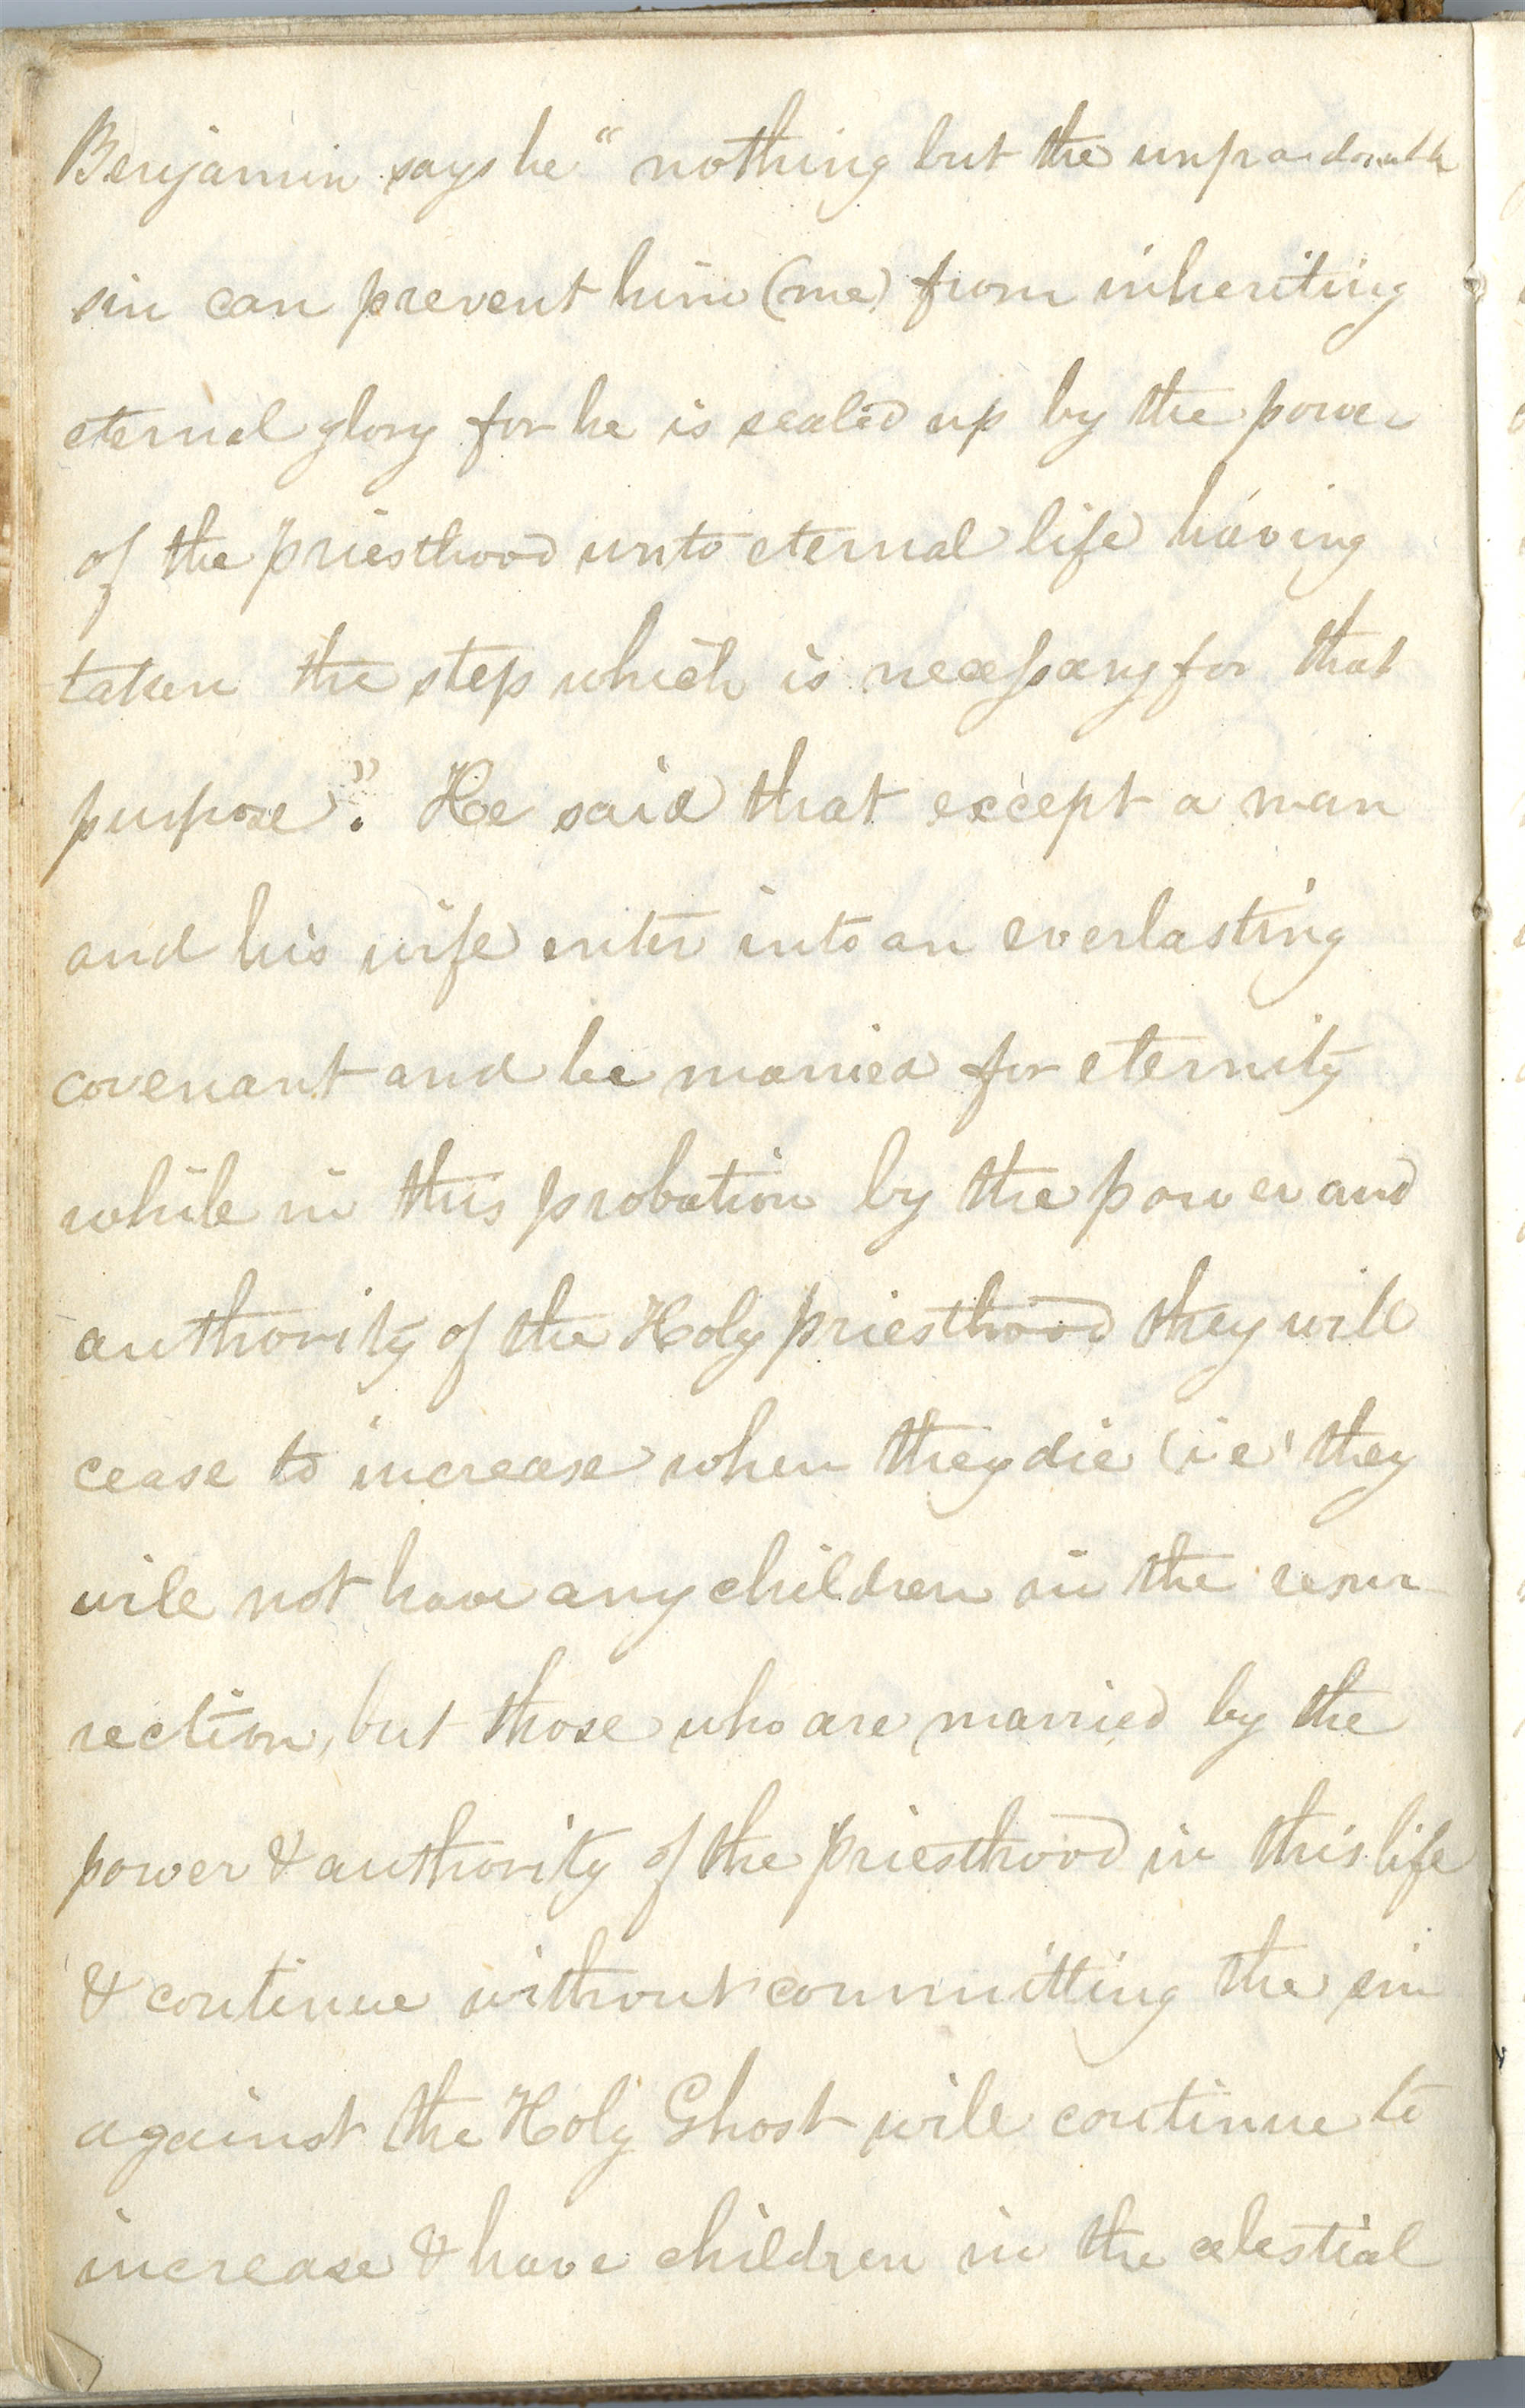 Benjamin says he "nothing but the unpardonable
sin can prevent him (me) from inheriting
eternal glory for he is sealed up by the power
of the priesthood unto eternal life having
taken the step which is necessary for that
purpose". He said that except a man
and his wife enter into an everlasting
covenant and be married for eternity
while in this probation by the power and
authority of the Holy priesthood they will
cease to increase when they die (ie' they
will not have any children in the resur-
rection, but those who are married by the
power & authority of the priesthood in this life
& continue without committing the sin
against the Holy Ghost will continue to
increase & have children in the celestial